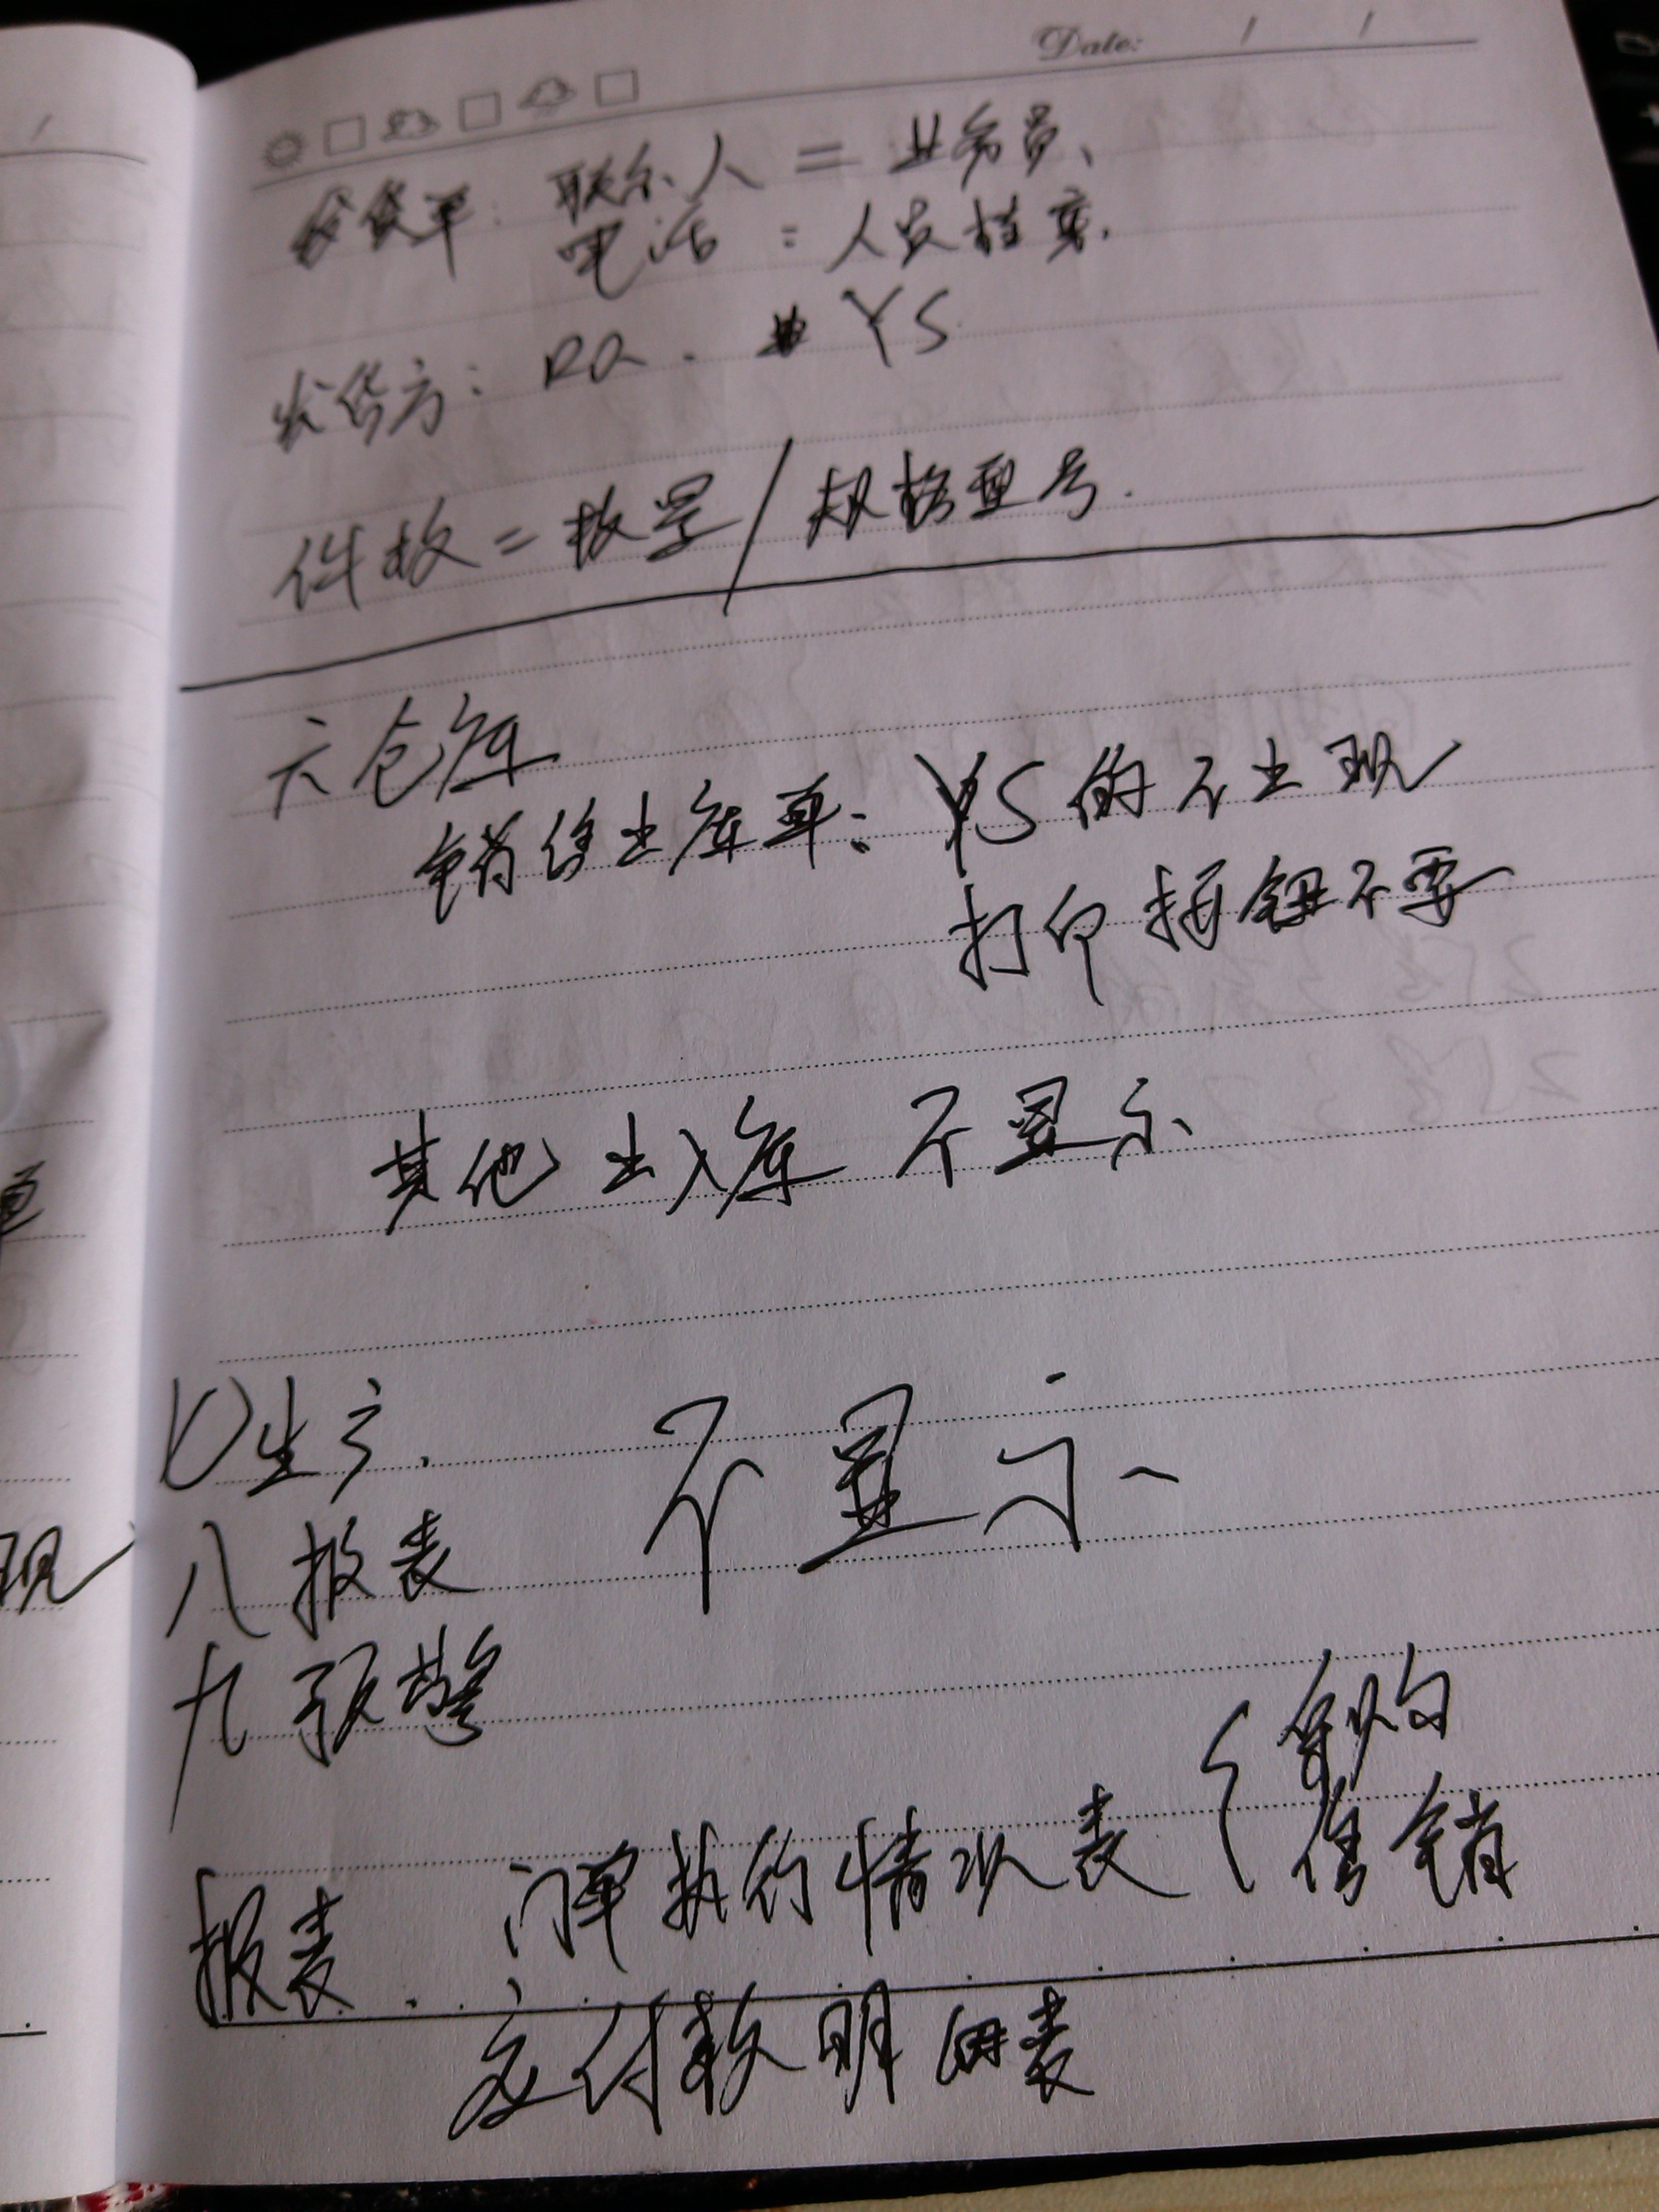 Date: / /
发货单: 联系人 = 业务员、
电话 : 人员档案.
发货方: RQ . YS
件数 = 数量/规格型号.
六 仓库
销售出库单: YS的不出现
打印按钮不要
其他出入库 不显示
七 生产、 不显示
八 报表
九 预警
采购
报表 订单执行情况表 { 销售
应付款明细表
现